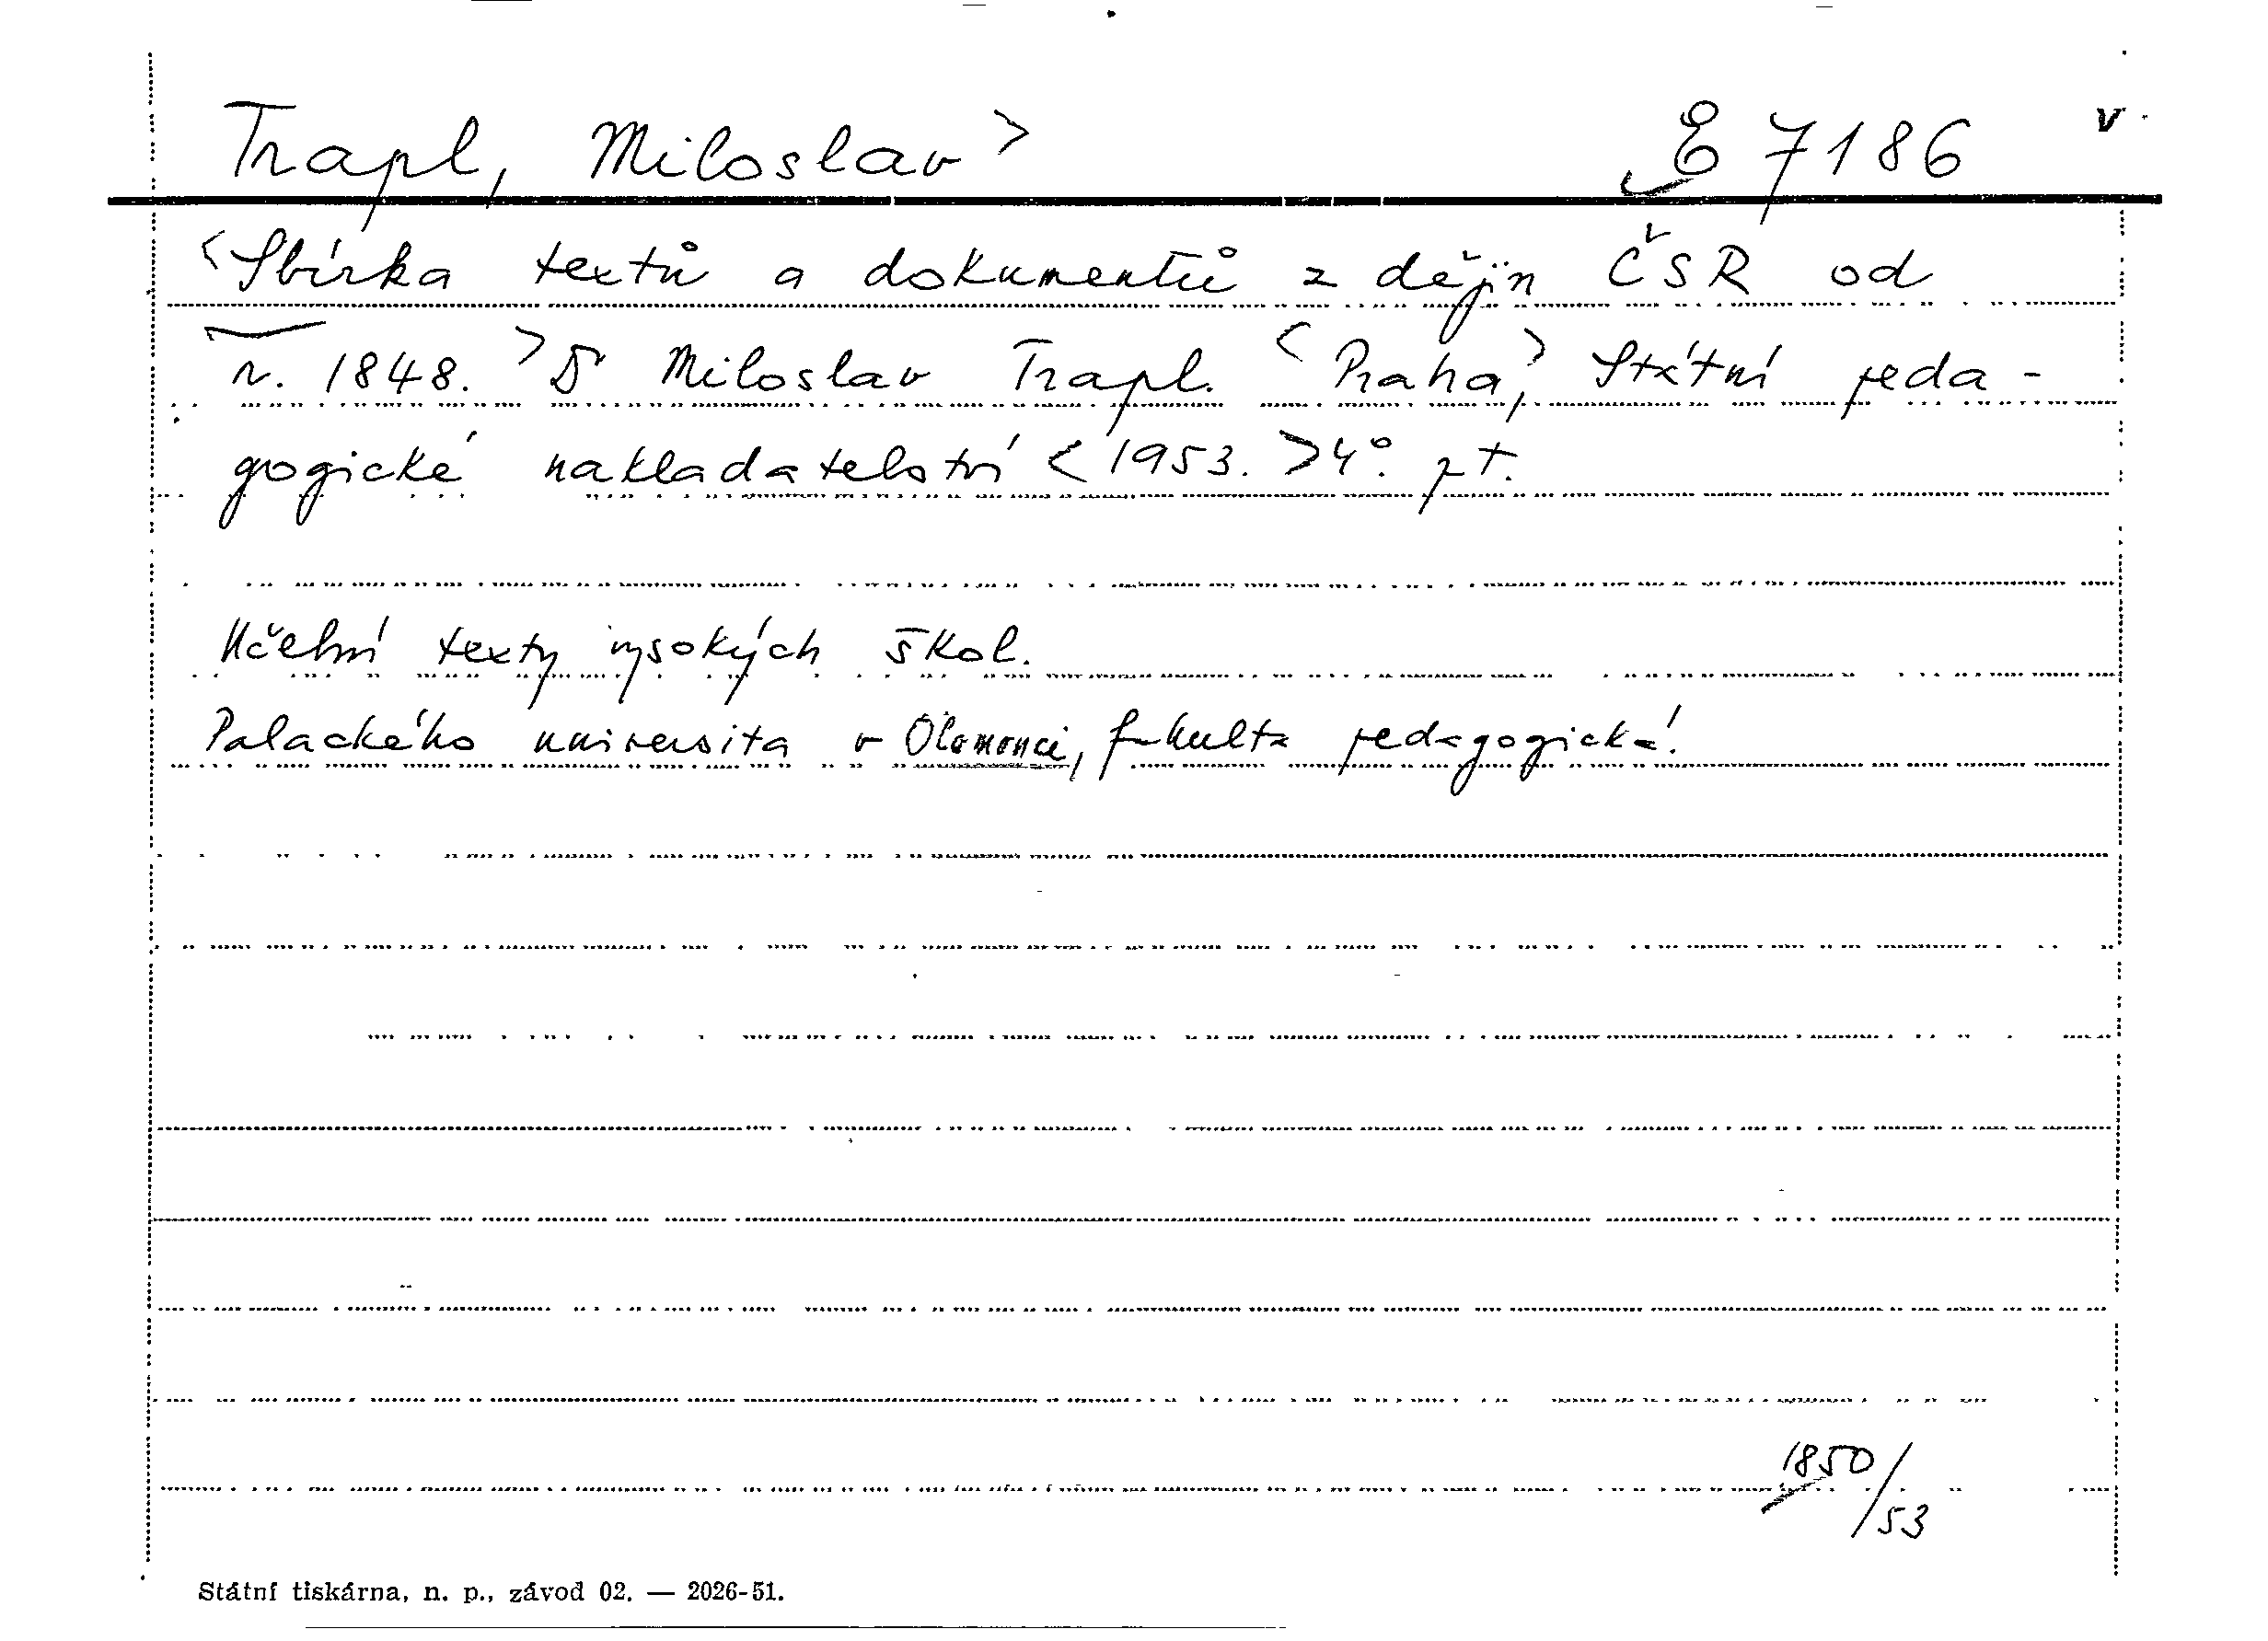 Trapl, Miloslav > E 7186 v
<Sbírka textů a dokumentů z dějin ČSR od
r. 1848.> Dr Miloslav Trapl. <Praha,> Státní peda-
gogické nakladatelství <1953.> 4°. pt.
Učební texty vysokých škol.
Palackého universita v Olomouci, fakulta pedagogická.
1850/53
Státní tiskárna, n. p., závod 02. — 2026-51.